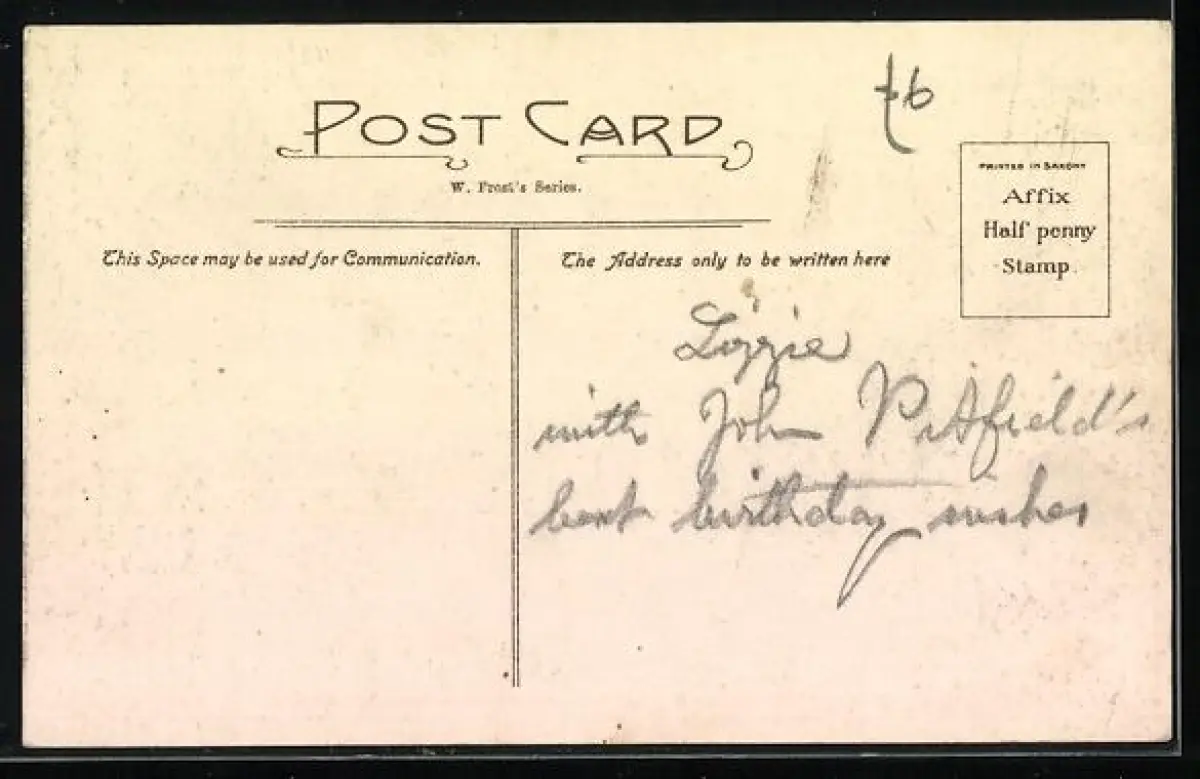 POST CARD
W. Frost's Series.
This Space may be used for Communication.
The Address only to be written here
PRINTED IN SAXONY
Affix
Half penny
Stamp
Lizzie
with John Pitfield's
best birthday wishes